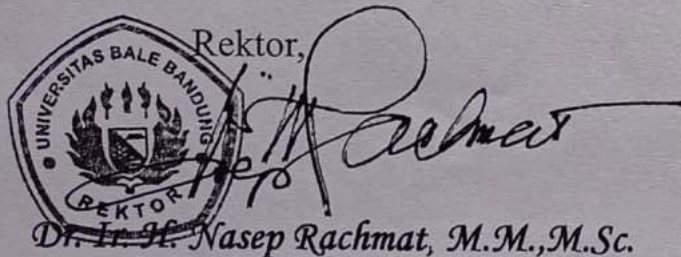 Rektor,
UNIVERSITAS BALE BANDUNG
REKTOR
Dr. Ir. H. Nasep Rachmat, M.M.,M.Sc.